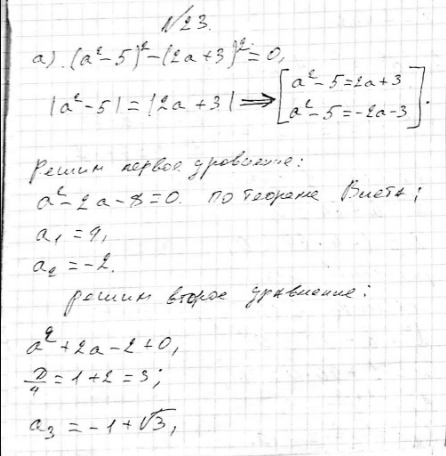 №23.
а). (a²-5)²-(2a+3)²=0,
|a²-5|=|2a+3| ⟹ [a²-5=2a+3
a²-5=-2a-3].
Решим первое уравнение:
a²-2a-8=0. по теореме Виета;
a₁=4,
a₂=-2.
решим второе уравнение:
a²+2a-2+0,
D/4=1+2=3;
a₃=-1+√3,